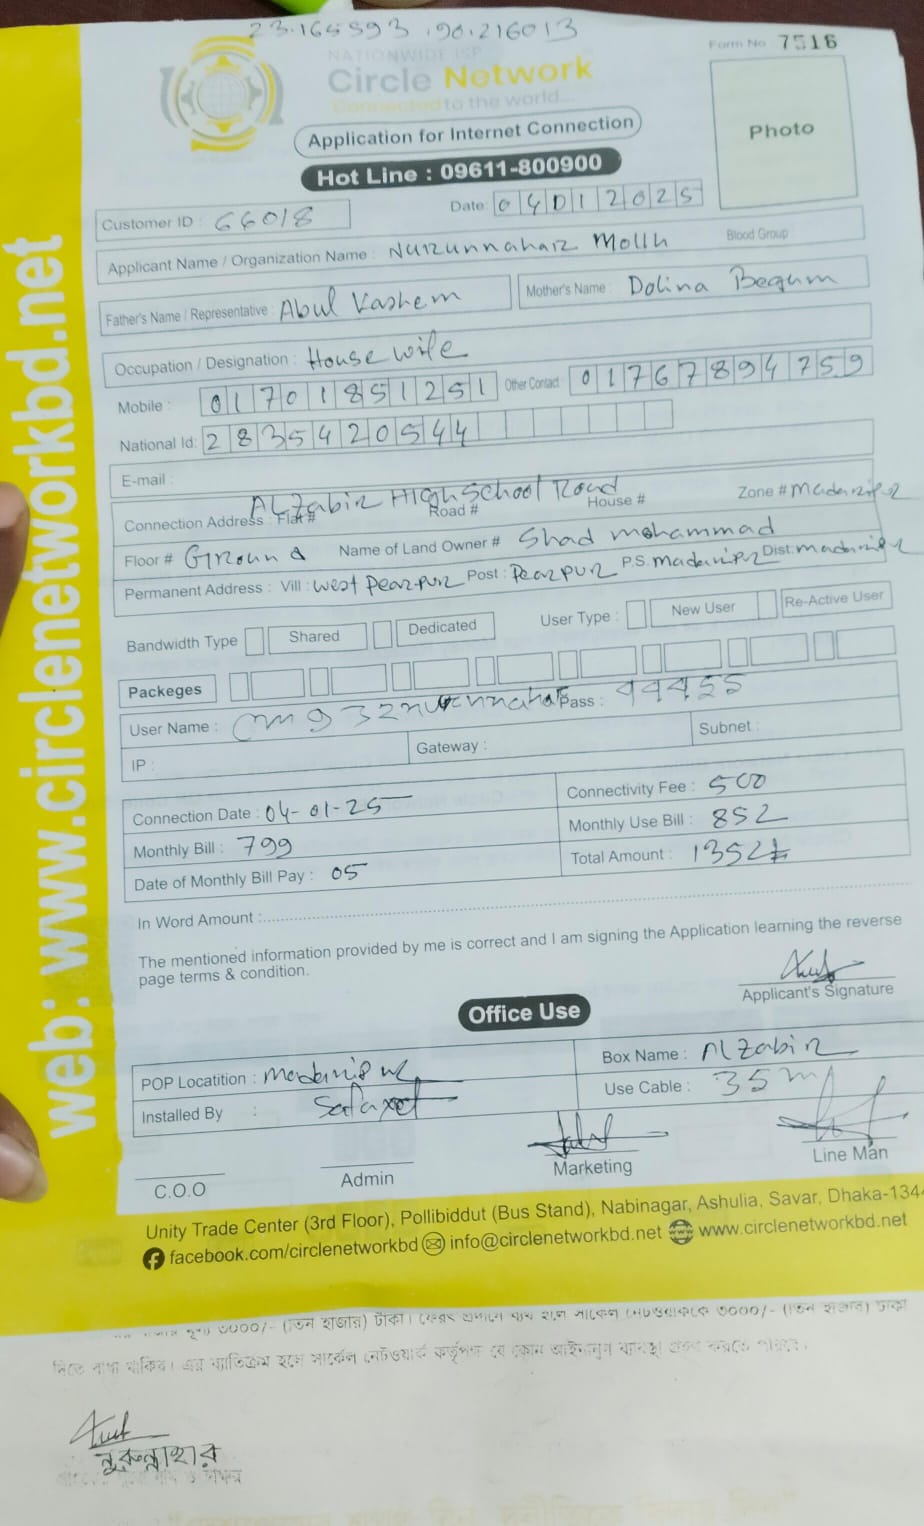 23.165593 .90.216013
NATIONWIDE ISP
Form No 7516
Circle Network
Connected to the world...
Application for Internet Connection
Photo
Hot Line : 09611-800900
Customer ID : 66018
Date: 04012025
Applicant Name / Organization Name : Nurunnahar Mollh Blood Group
Father's Name / Representative : Abul Kashem Mother's Name : Dolina Begum
Occupation / Designation : House wife
Mobile : 01701851251 Other Contact : 01767894759
National Id: 2835420544
E-mail :
Connection Address : Flat # AL Zabir High School Road Road # House # Zone # madaripur
Floor # Ground Name of Land Owner # Shad mohammad
Permanent Address : Vill : west pearpur Post : Pearpur P.S. madaripur Dist: madaripur
Bandwidth Type Shared Dedicated User Type : New User Re-Active User
Packeges
User Name : Pass : 99455
IP : Gateway : Subnet :
Connection Date : 04-01-25 Connectivity Fee : 500
Monthly Bill : 799 Monthly Use Bill : 852
Date of Monthly Bill Pay : 05 Total Amount : 1352
In Word Amount :
The mentioned information provided by me is correct and I am signing the Application learning the reverse
page terms & condition.
Applicant's Signature
Office Use
POP Locatition : madaripur Box Name : Al Zabir
Installed By : Use Cable : 35m
C.O.O Admin Marketing Line Man
Unity Trade Center (3rd Floor), Pollibiddut (Bus Stand), Nabinagar, Ashulia, Savar, Dhaka-134
facebook.com/circlenetworkbd info@circlenetworkbd.net www.circlenetworkbd.net
web: www.circlenetworkbd.net
৩০০০/- (তিন হাজার) টাকা। ৩০০০/- (তিন হাজার) টাকা
দিতে বাধ্য থাকিব। এর ব্যতিক্রম হলে সার্কেল নেটওয়ার্ক কর্তৃপক্ষ যে কোন আইনানুগ ব্যবস্থা গ্রহণ করতে পারবে।
নুরুন্নাহার